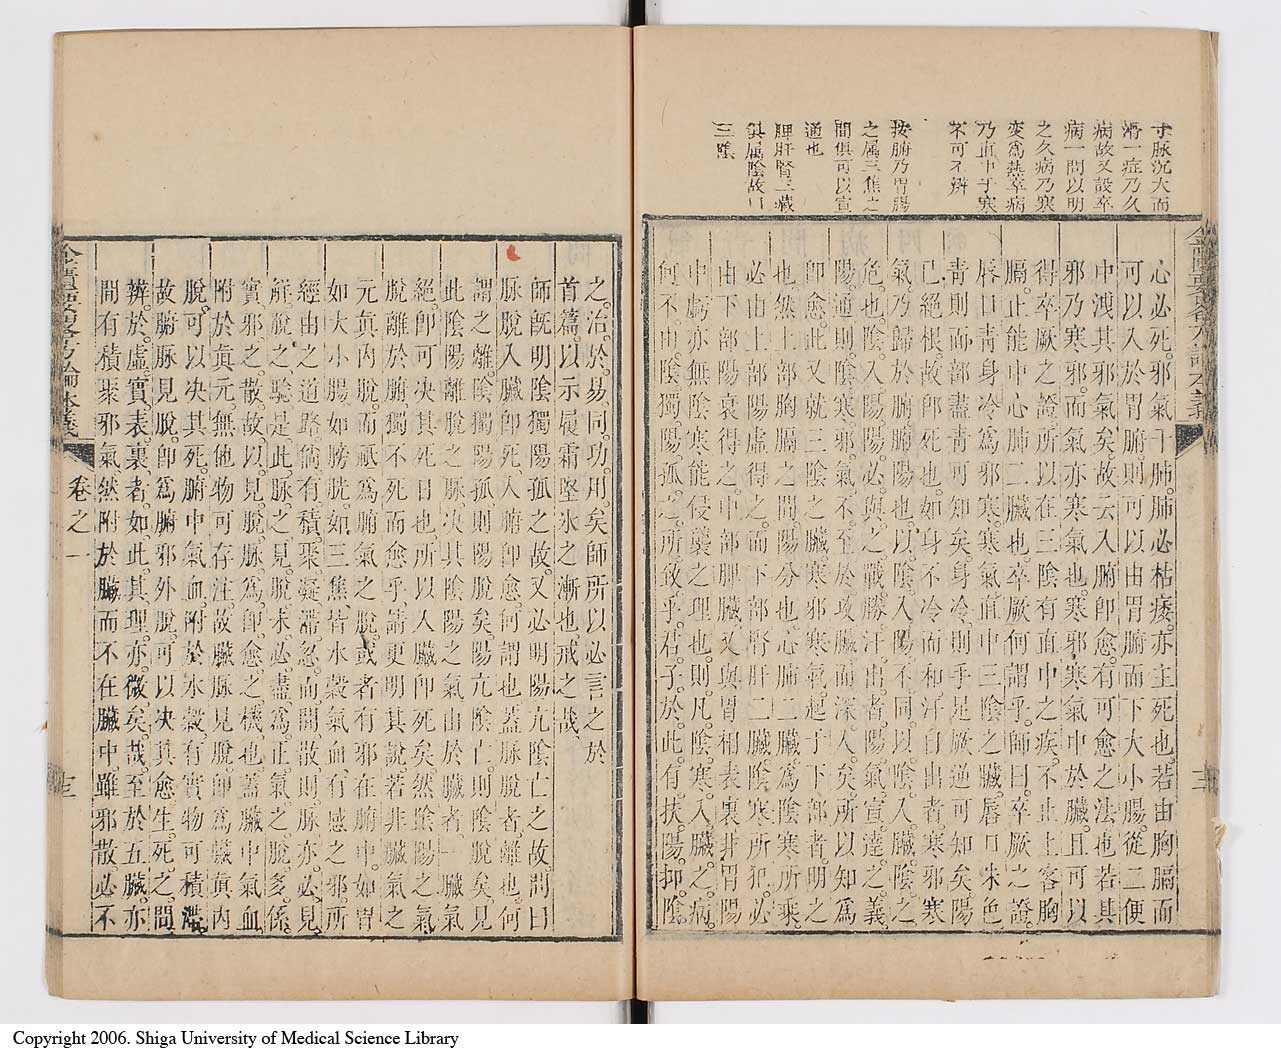 寸脉沉大而
滑一症乃久
病故又設卒
病一問以明
之久病乃寒
變爲熱卒病
乃直中于寒
不可不辨
按腑乃胃腸
之属三焦之
間俱可以宣
通也
脾肝腎三藏
俱属陰故曰
三陰
心必死。邪氣干肺。肺必枯痿。亦主死也。若由胸膈而
可以入於胃腑。則可以由胃腑而下大小腸。從二便
中洩其邪氣矣。故云入腑卽愈。有可愈之法也。若其
邪乃寒邪。而氣亦寒氣也。寒邪寒氣中於臟。且可以
得卒厥之證。所以在三陰有直中之疾。不止上客胸
膈。止能中心肺二臟也。卒厥何謂乎。師曰。卒厥之證。
唇口青身冷。爲邪寒。寒氣直中三陰之臟。唇口味色
青。則面部盡青可知矣。身冷。則手足厥逆可知矣。陽
已絕根。故卽死也。如身不冷而和。汗自出者。寒邪寒
氣。乃歸於腑。腑陽也。以陰入陽。不同以陰入臟。陰之
危也。陰入陽。必與之戰。勝汗出者。陽氣宣達之義。
陽通則陰寒邪氣不至於攻臟而深入矣。所以知爲
卽愈。此又就三陰之臟。寒邪寒氣起于下部者。明之
也。然上部胸膈之間。陽分也。心肺二臟。爲陰寒所乘。
必由上部陽虛得之。而下部腎肝二臟。陰寒所犯。必
由下部陽衰得之。中部脾臟。又與胃相表裏。非胃陽
中虧。亦無陰寒能侵襲之理也。則凡陰寒入臟之病。
何不由陰獨陽孤之所致乎。君子於此有扶陽抑陰
之治。於易同功用矣。師所以必言之於
首篇。以示履霜堅氷之漸也。戒之哉。
師旣明陰獨陽孤之故。又必明陽亢陰亡之故。問曰
脉脫入臟卽死。入腑卽愈。何謂也。蓋脉脫者。離也。何
謂之離。陰獨陽孤。則陽脫矣。陽亢陰亡。則陰脫矣。見
此陰陽離脫之脉。决其陰陽之氣。由於臟者。一臟氣
絕。卽可决其死日也。所以入臟卽死矣。然陰陽之氣
脫離於腑。獨不死而愈乎。請更明其說。若非臟氣之
元眞內脫。而祗爲腑氣之脫。或者有邪在腑中。如胃
如大小腸。如膀胱。如三焦。皆水穀氣血。有感之邪。所
經由之道路。倘有積聚凝滯。忽而開散。則脉亦必見
解脫之騐。是此脉之見脫。未必盡爲正氣之脫。多係
實邪之散。故以見脫脉爲卽愈之機也。蓋臟中氣血
附於眞元。無他物可存注。故臟脉見脫。卽爲臟眞內
脫。可以决其死。腑中氣血。附於水穀。有實物可積滯。
故腑脉見脫。卽爲腑邪外脫。可以决其愈。生死之間。
辨於虛實表裏者。如此。其理亦微矣哉。至於五臟。亦
間有積聚邪氣。然附於臟而不在臟中。雖邪散。必不
卷之一